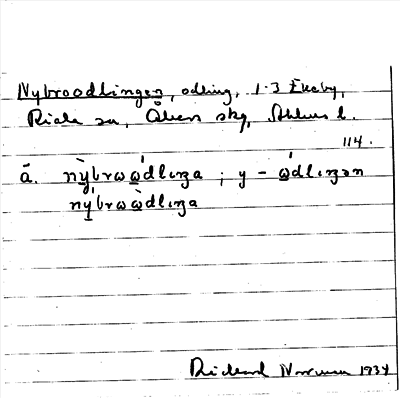 Nybroodlingen, odling, 1.3 Ekeby,
Riala sn, Åkers skg, Sthlms l.
114.
å. nỳbrωώ̣dlıŋa ; y - ώ̣dlıŋən
nýbrωὼ̣dlıŋa
Rickard Norrman 1934